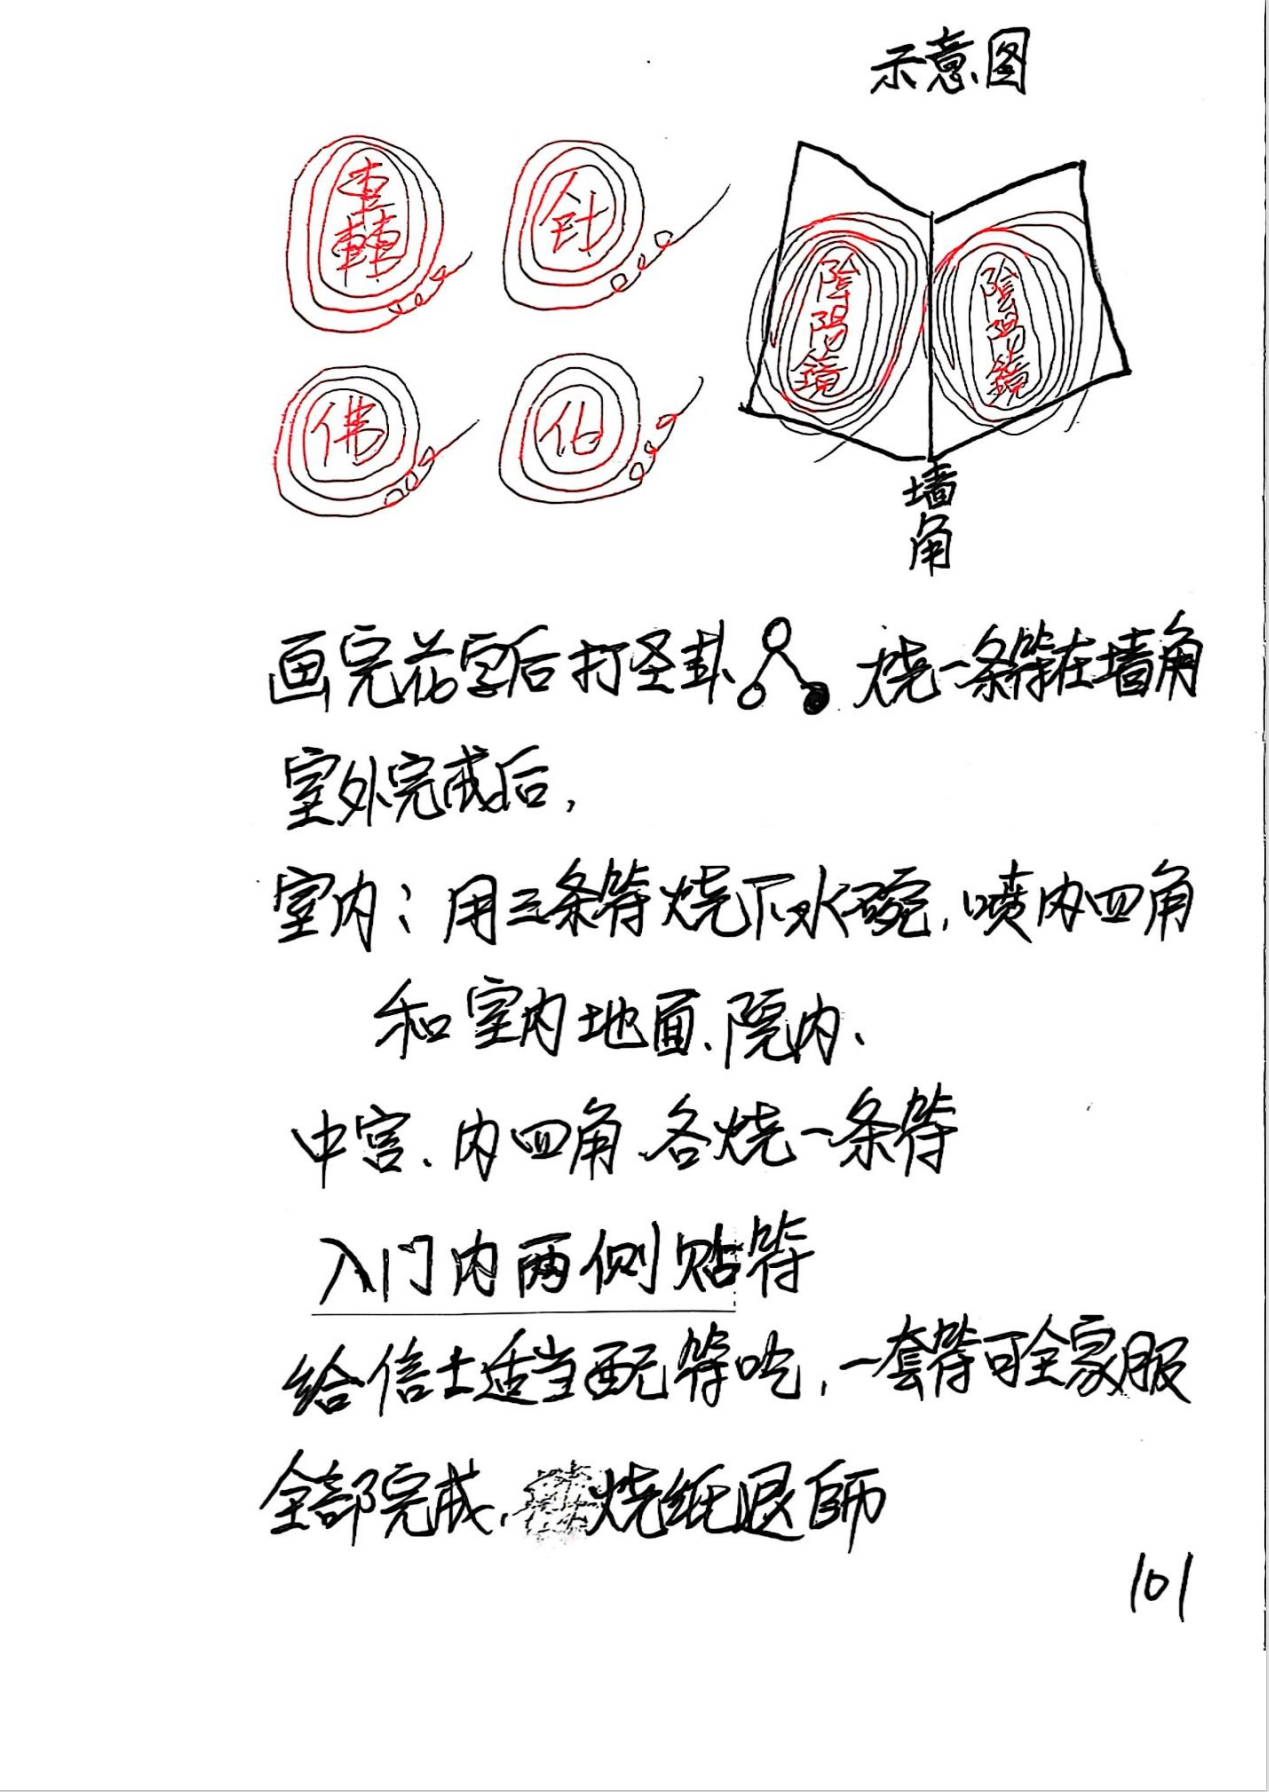 示意图
針
佛
陰陽鏡
陰陽鏡
墙角
画完花字后打圣卦 烧一条符在墙角
室外完成后,
室内:用三条符烧下水碗,喷内四角
和室内地面、院内、
中宫、内四角各烧一条符
入门内两侧贴符
给信士适当配符吃,一套符可全家服
全部完成,烧纸退師
101